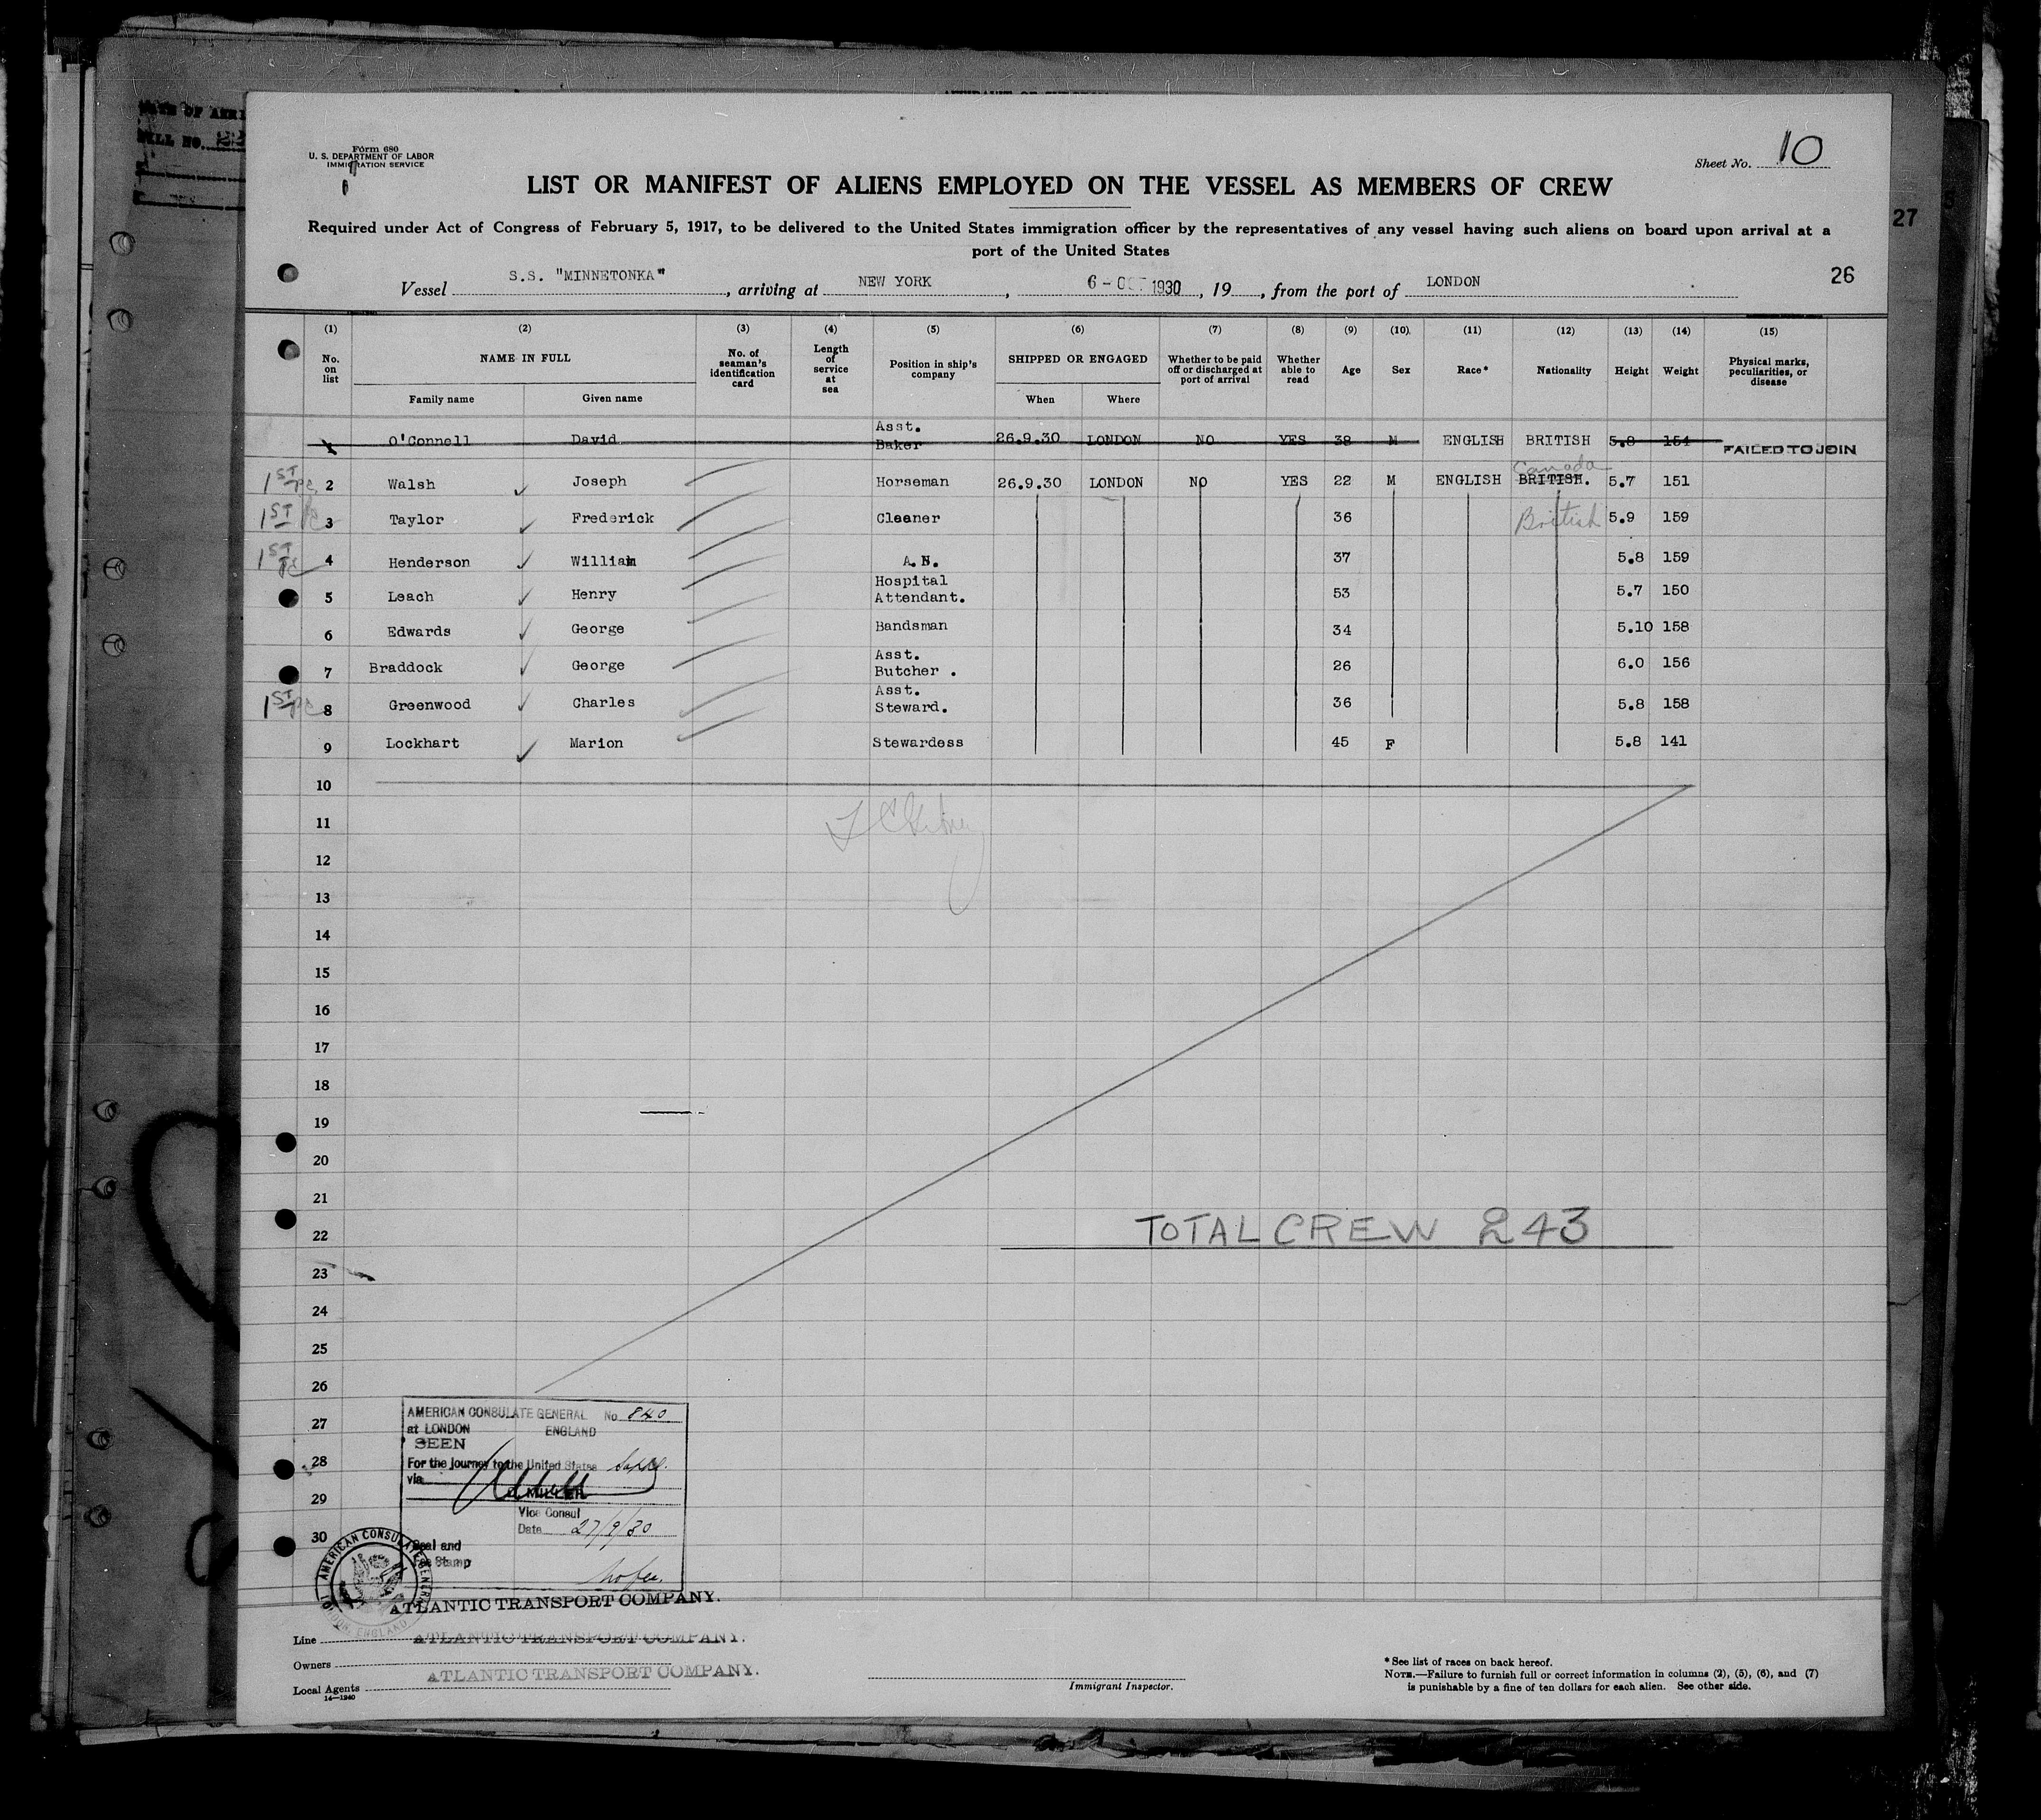 Form 680
U. S. DEPARTMENT OF LABOR
IMMIGRATION SERVICE
Sheet No. 10
LIST OR MANIFEST OF ALIENS EMPLOYED ON THE VESSEL AS MEMBERS OF CREW
Required under Act of Congress of February 5, 1917, to be delivered to the United States immigration officer by the representatives of any vessel having such aliens on board upon arrival at a
port of the United States
27
26
Vessel S.S. "MINNETONKA", arriving at NEW YORK, 6 - OCT 1930, 19, from the port of LONDON
(1) (2) (3) (4) (5) (6) (7) (8) (9) (10) (11) (12) (13) (14) (15)
No. on list NAME IN FULL No. of seaman's identification card Length of service at sea Position in ship's company SHIPPED OR ENGAGED Whether to be paid off or discharged at port of arrival Whether able to read Age Sex Race* Nationality Height Weight Physical marks, peculiarities, or disease
Family name Given name When Where
1 O'Connell David Asst. Baker 26.9.30 LONDON NO YES 38 M ENGLISH BRITISH 5.8 154 FAILED TO JOIN
1ST PC 2 Walsh Joseph Horseman 26.9.30 LONDON NO YES 22 M ENGLISH BRITISH. Canada 5.7 151
1ST PC 3 Taylor Frederick Cleaner 36 British 5.9 159
1ST PC 4 Henderson William 37 5.8 159
5 Leach Henry Hospital Attendant. 53 5.7 150
6 Edwards George Bandsman 34 5.10 158
7 Braddock George Asst. Butcher . 26 6.0 156
1ST PC 8 Greenwood Charles Asst. Steward. 36 5.8 158
9 Lockhart Marion Stewardess 45 F 5.8 141
10
11
12
13
14
15
16
17
18
19
20
21
22 TOTAL CREW 243
23
24
25
26
27
28
29
30
AMERICAN CONSULATE GENERAL No. 840
at LONDON ENGLAND
SEEN
For the journey to the United States
via
MILLER
Vice Consul
Date 27/9/30
Seal and
Fee Stamp
No fee.
AMERICAN CONSULATE GENERAL LONDON ENGLAND
ATLANTIC TRANSPORT COMPANY.
Line ATLANTIC TRANSPORT COMPANY.
Owners ATLANTIC TRANSPORT COMPANY.
Local Agents
14—1240
Immigrant Inspector.
* See list of races on back hereof.
NOTE.—Failure to furnish full or correct information in columns (2), (5), (6), and (7)
is punishable by a fine of ten dollars for each alien. See other side.